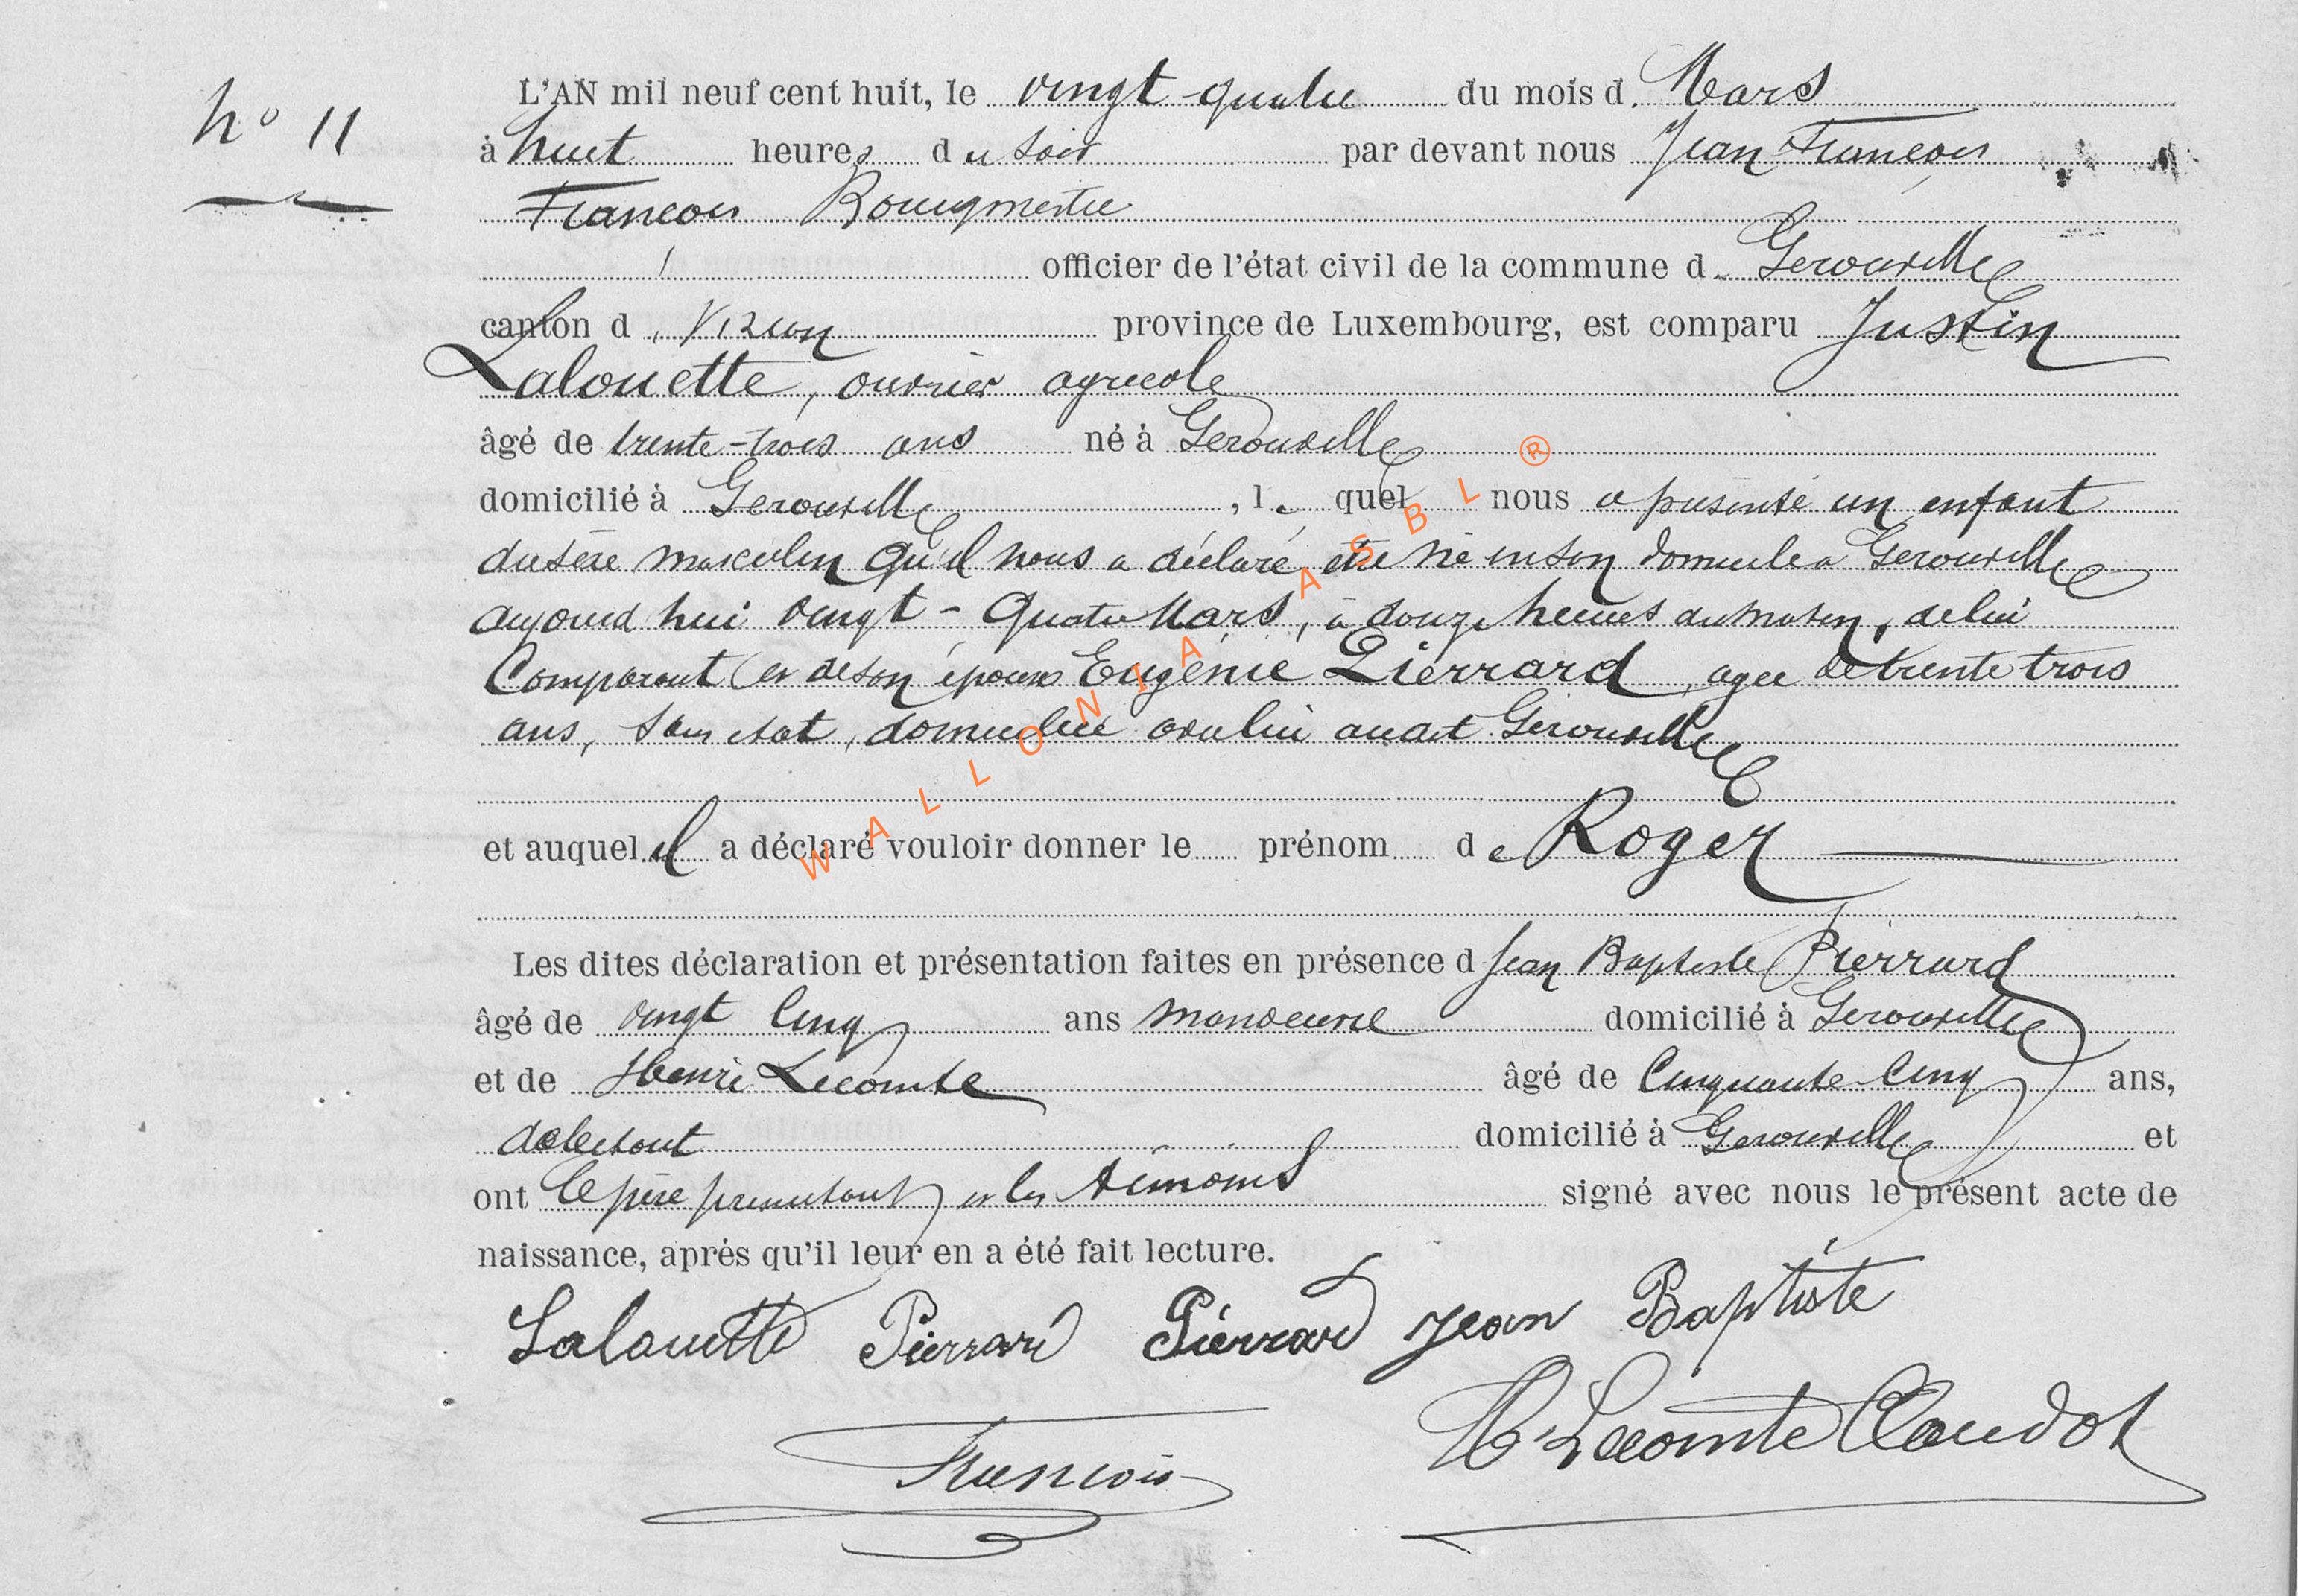 N° 11
L'AN mil neuf cent huit, le vingt-quatre du mois d. Mars
à huit heures du soir par devant nous Jean François
François Bourgmestre
officier de l'état civil de la commune d. Gerouville
canton d. Virton province de Luxembourg, est comparu Justin
Lalouette, ouvrier agricole
âgé de trente-trois ans né à Gerouville
domicilié à Gerouville, le quel nous a présenté un enfant
du sexe masculin qu'il nous a déclaré être né en son domicile a Gerouville
aujourd hui vingt-quatre Mars, à douze heures du matin, de lui
Comparant et de son épouse Eugénie Pierrard, agée de trente trois
ans, sans état, domiciliée avec lui audit Gerouville
et auquel il a déclaré vouloir donner le prénom de Roger
Les dites déclaration et présentation faites en présence d Jean Baptiste Pierrard
âgé de vingt cinq ans manoeuvre domicilié à Gerouville
et de Henri Lecomte âgé de Cinquante-cinq ans,
domicilié à Gerouville et
ont le père présentant et les témoins signé avec nous le présent acte de
naissance, après qu'il leur en a été fait lecture.
Lalouette Pierrard Pierrard Jean Baptiste
H Lecomte Claudot
François
WALLONIA ASBL ®